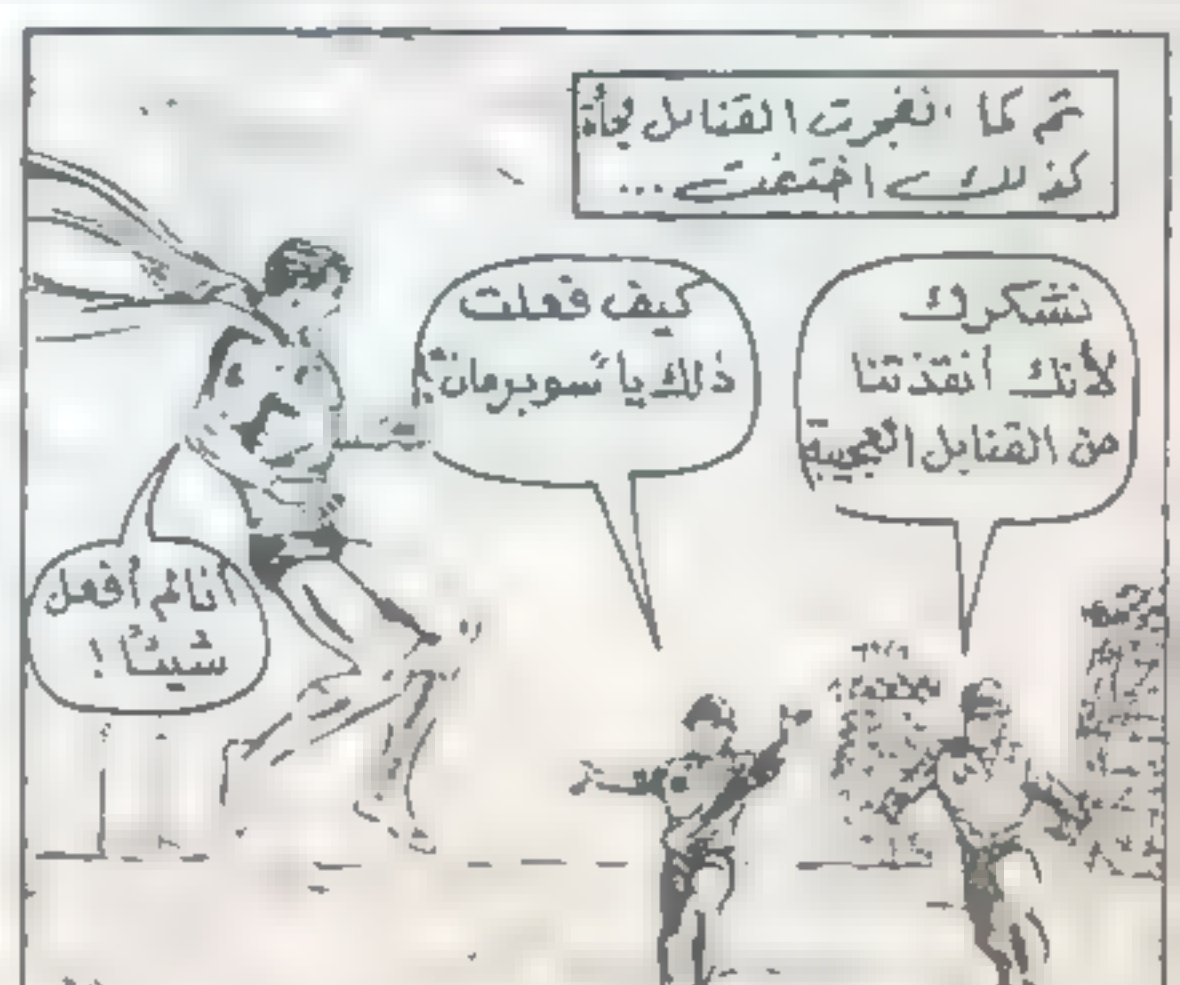 ثم كما انفجرت القنابل فجأة
كذلك اختفت...
نشكرك
لأنك أنقذتنا
من القنابل العجيبة
كيف فعلت
ذلك يا سوبرمان؟
أنا لم أفعل
شيئًا !